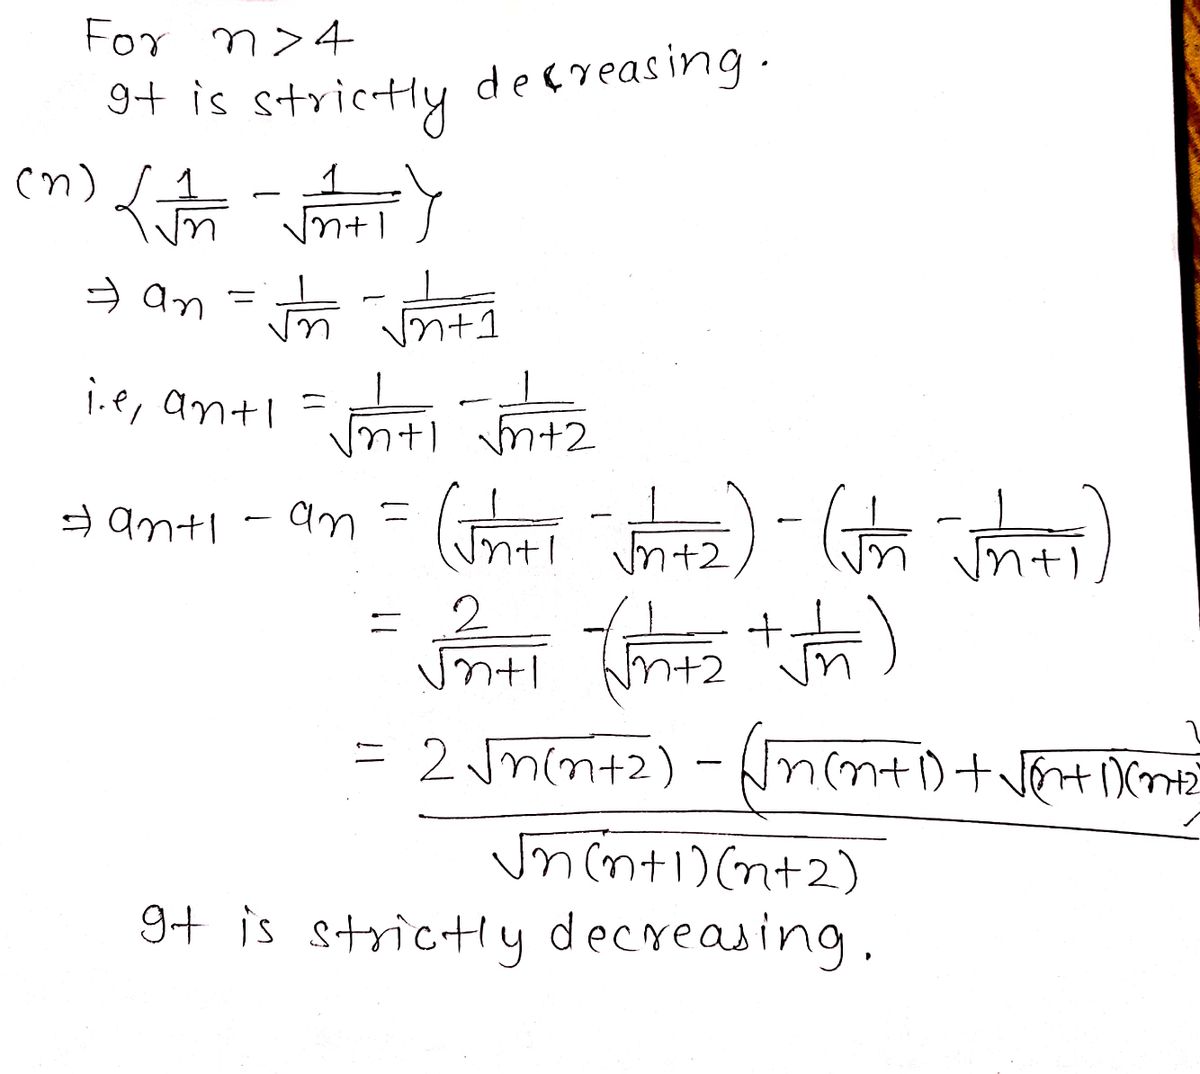 For n>4
It is strictly decreasing.
(n) {1/√n - 1/√n+1}
⇒ an = 1/√n - 1/√n+1
i.e, an+1 = 1/√n+1 - 1/√n+2
⇒ an+1 - an = (1/√n+1 - 1/√n+2) - (1/√n - 1/√n+1)
= 2/√n+1 - (1/√n+2 + 1/√n)
= 2√n(n+2) - (√n(n+1) + √(n+1)(n+2)
√n(n+1)(n+2)
It is strictly decreasing.